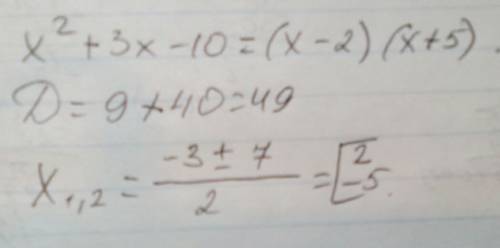 x² + 3x - 10 = (x - 2) (x + 5)
D = 9 + 40 = 49
x₁,₂ = (-3 ± 7) / 2 = [ 2
-5.